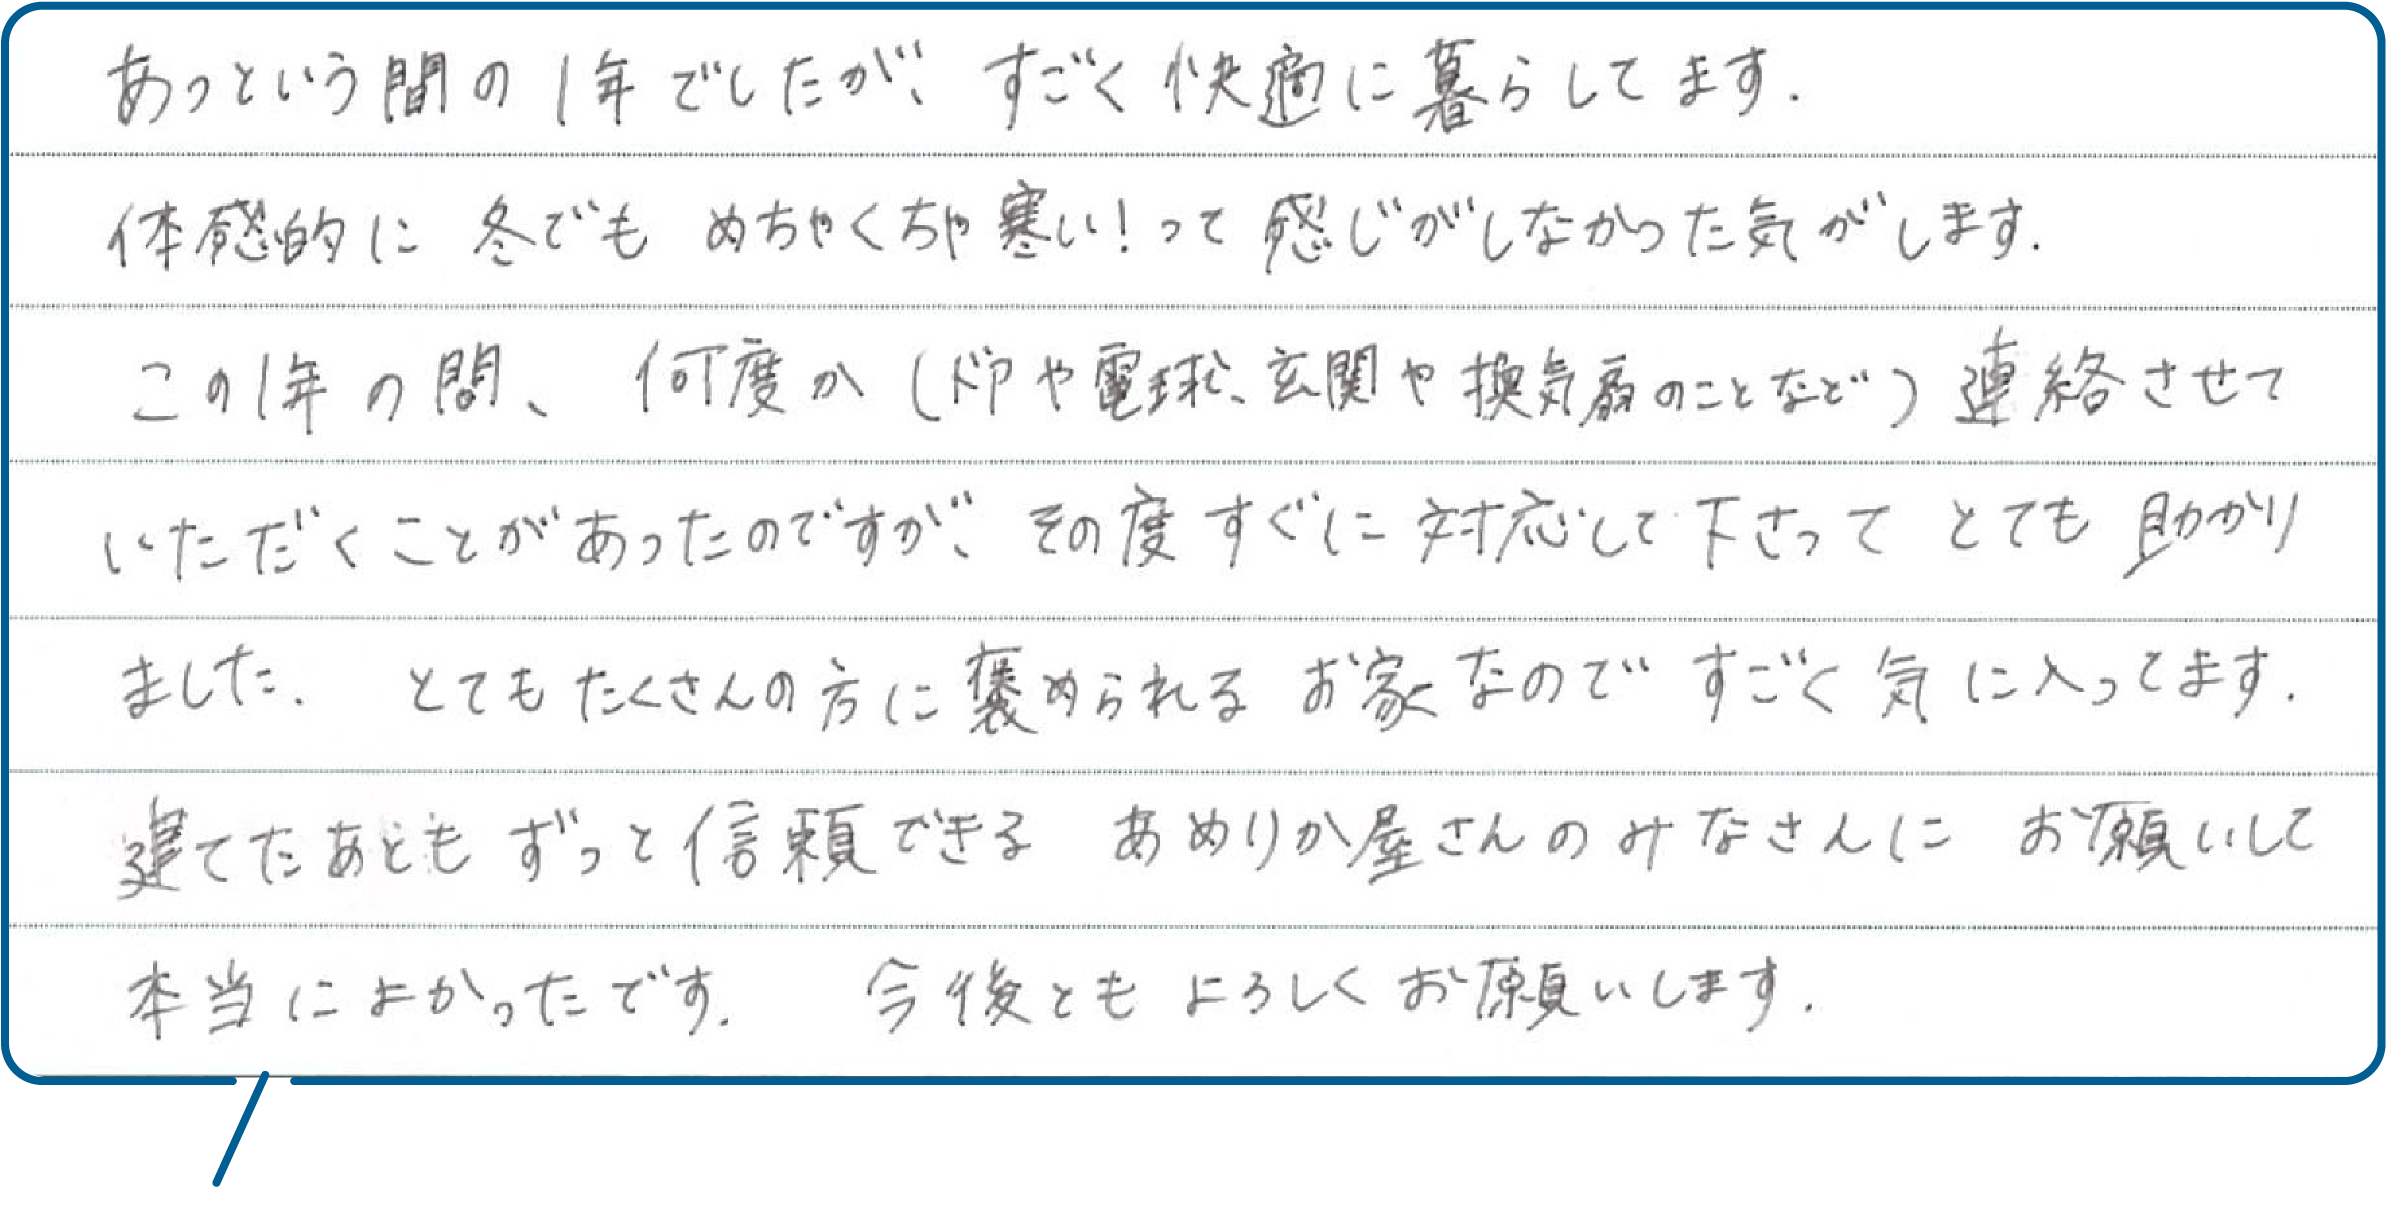 あっという間の1年でしたが、すごく快適に暮らしてます.
体感的に 冬でも めちゃくちゃ寒い!って 感じがしなかった気がします.
この1年の間、 何度か(ドアや電球、玄関や換気扇のことなど)連絡させて
いただくことがあったのですが、その度すぐに対応して下さって とても 助かり
ました. とてもたくさんの方に褒められる お家なので すごく気に入ってます.
建てたあともずっと信頼できる あめりか屋さんのみなさんに お願いして
本当によかったです. 今後とも よろしくお願いします.